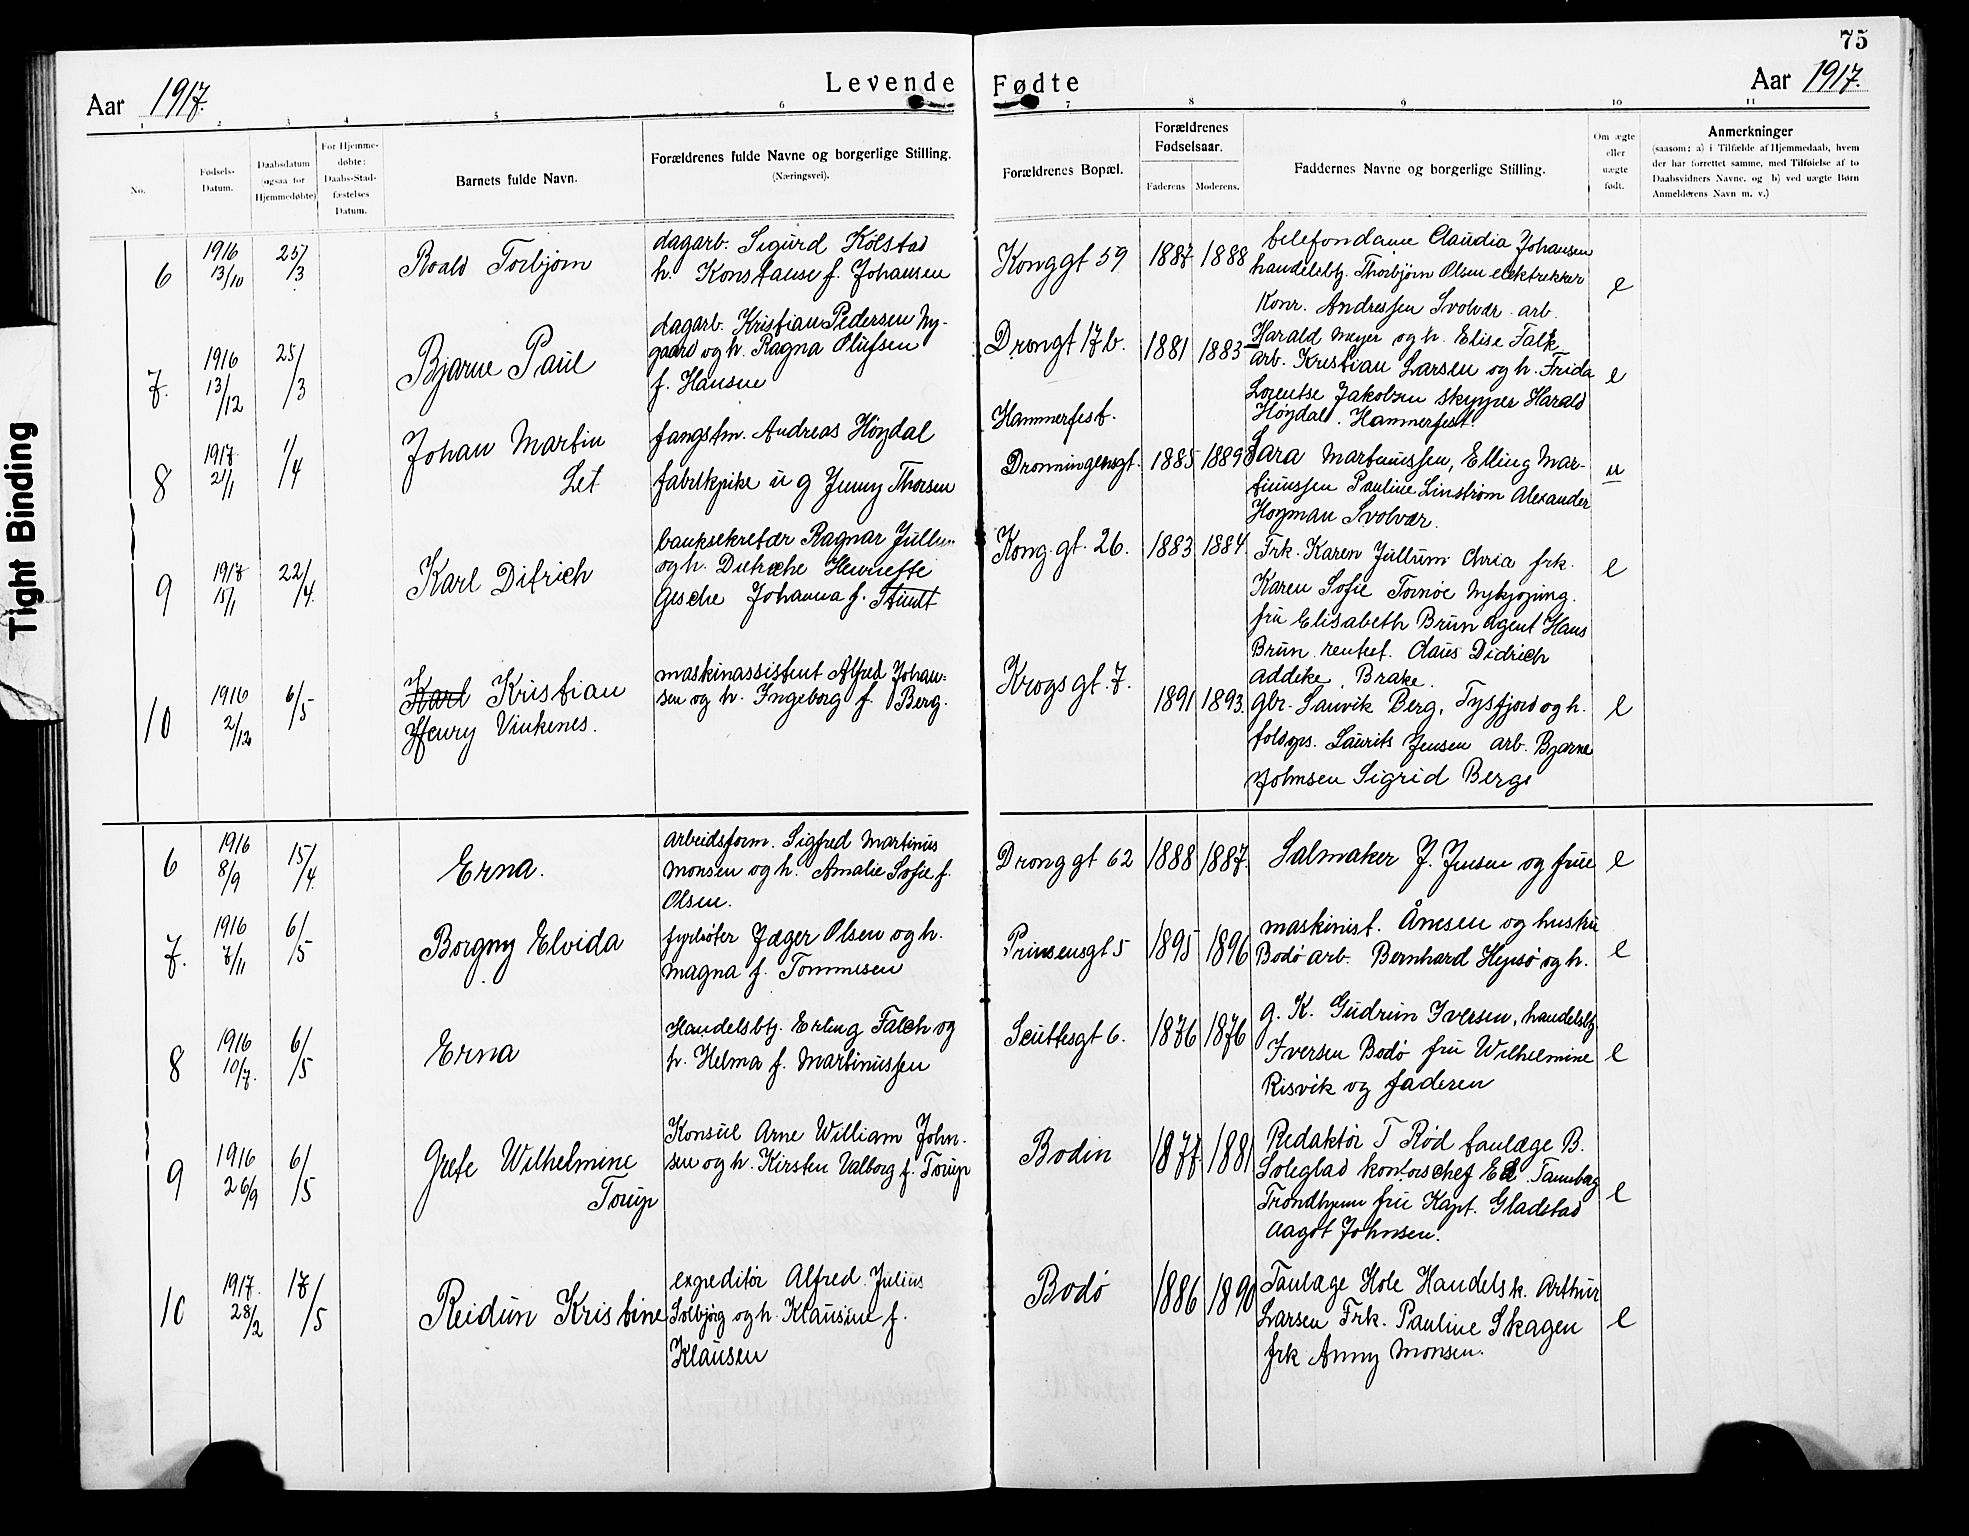 75
Levende Fødte
Aar 1917.
Aar 1917.
1 2 3 4 5 6 7 8 9 10 11
No.
Fødsels-
Datum.
Daabsdatum
(ogsaa for
Hjemmedøbte)
For Hjemme-
døbte:
Daabs-Stad-
fæstelses
Datum.
Barnets fulde Navn.
Forældrenes fulde Navne og borgerlige Stilling.
(Næringsvei).
Forældrenes Bopæl.
Forældrenes
Fødselsaar.
Faderens Moderens.
Faddernes Navne og borgerlige Stilling.
Om ægte
eller
uægte
født.
Anmerkninger
(saasom: a) i Tilfælde af Hjemmedaab, hvem
der har forrettet samme, med Tilføielse af to
Daabsvidners Navne, og b) ved uægte Børn
Anmelderens Navn m. v.)
6
1916
13/10
25/3
Roald Torbjørn
dagarb. Sigurd Kolstad
h. Konstanse f. Johansen
Konggt 59
1887 1888
telefondame Claudia Johansen
handelsbtj. Thorbjørn Olsen elektrikker
Konr. Andressen Svolvær. arb.
e
7.
1916
13/12
25/3
Bjarne Paul
dagarb. Kristian Pedersen Ny-
gaard og h. Ragna Olufsen
f. Hansen
Drongt 17b.
1881 1883
Harald Meyer og h. Elise Falk
arb. Kristian Larsen og h. Frida
Lorentse Jakobsen skipper Harald
Höydal. Hammerfest.
e
8
1917
21/1
1/4
Johan Martin
Let
fangstm. Andreas Höydal
fabrikpike u g Jenny Thorsen
Hammerfest.
Dronningensgt.
1885 1889
Sara Martinussen, Elling Mar-
tinussen Pauline Linstrøm Alexander
Hoyman Svolvær.
u
9
1917
15/1
22/4.
Karl Ditrich
banksekretær Ragnar Jullum
og h. Dietriche Henriette
Gesche Johanna f. Stindt
Kong. gt. 26.
1883 1884
Frk. Karen Jullum Chria frk.
Karen Sofie Tornøe Nykjøping.
fru Elisabeth Brun agent Hans
Brun. rentet. Claus Didrich
Addike Brake.
e
10
1916
2/12
6/5
Karl Kristian
Henry Vinkenes.
maskinassistent Alfred Johan-
sen og h. Ingeborg f. Berg.
Krogs gt. 7.
1891 1893.
gbr. Lauvik Berg, Tysfjord og h.
Laurits Jensen arb. Bjarne
Johnsen Sigrid Berge
e
6
1916
8/9
15/4.
Erna.
arbeidsform. Sigfred Martinus
Monsen og h. Amalie Sofie f.
Olsen.
Drong gt 62
1888 1887.
Salmaker J. Jensen og frue
e
7.
1916
7/11
6/5
Borgny Elvida
fyrbøter Jæger Olsen og h.
Magna f. Tommesen
Prinsensgt 5
1895 1896
maskinist. Ånesen og hustru
Bodø arb. Bernhard Hepsø og h.
e
8
1916
10/7.
6/5
Erna
Handelsbtj. Erling Falch og
h. Helma f. Martinussen
gt 6.
1876 1876
g. K. Gudrun Iversen, handelsbtj.
Iversen Bodø fru Wilhelmine
Risvik og faderen
e
9
1916
26/9
6/5
Grete Wilhelmine
Torup
Konsul Arne William John-
sen og h. Kirsten Valborg f. Torup
Bodin
1877. 1881
Redaktör T Rød tanlæge B.
Soleglad kontorschef Ed. Tanberg
Trondhjem fru Kapt. Gladstad
Aagot Johnsen.
e
10
1917.
28/2
17/5
Reidun Kristine
expeditör Alfred Julius
Solbjørg og h. Klausine f.
Klausen
Bodö
1886 1890
Tanlæge Hole Handels k. Arthur
Larsen Frk. Pauline Skagen
frk Anny Monsen.
e
Tight Binding